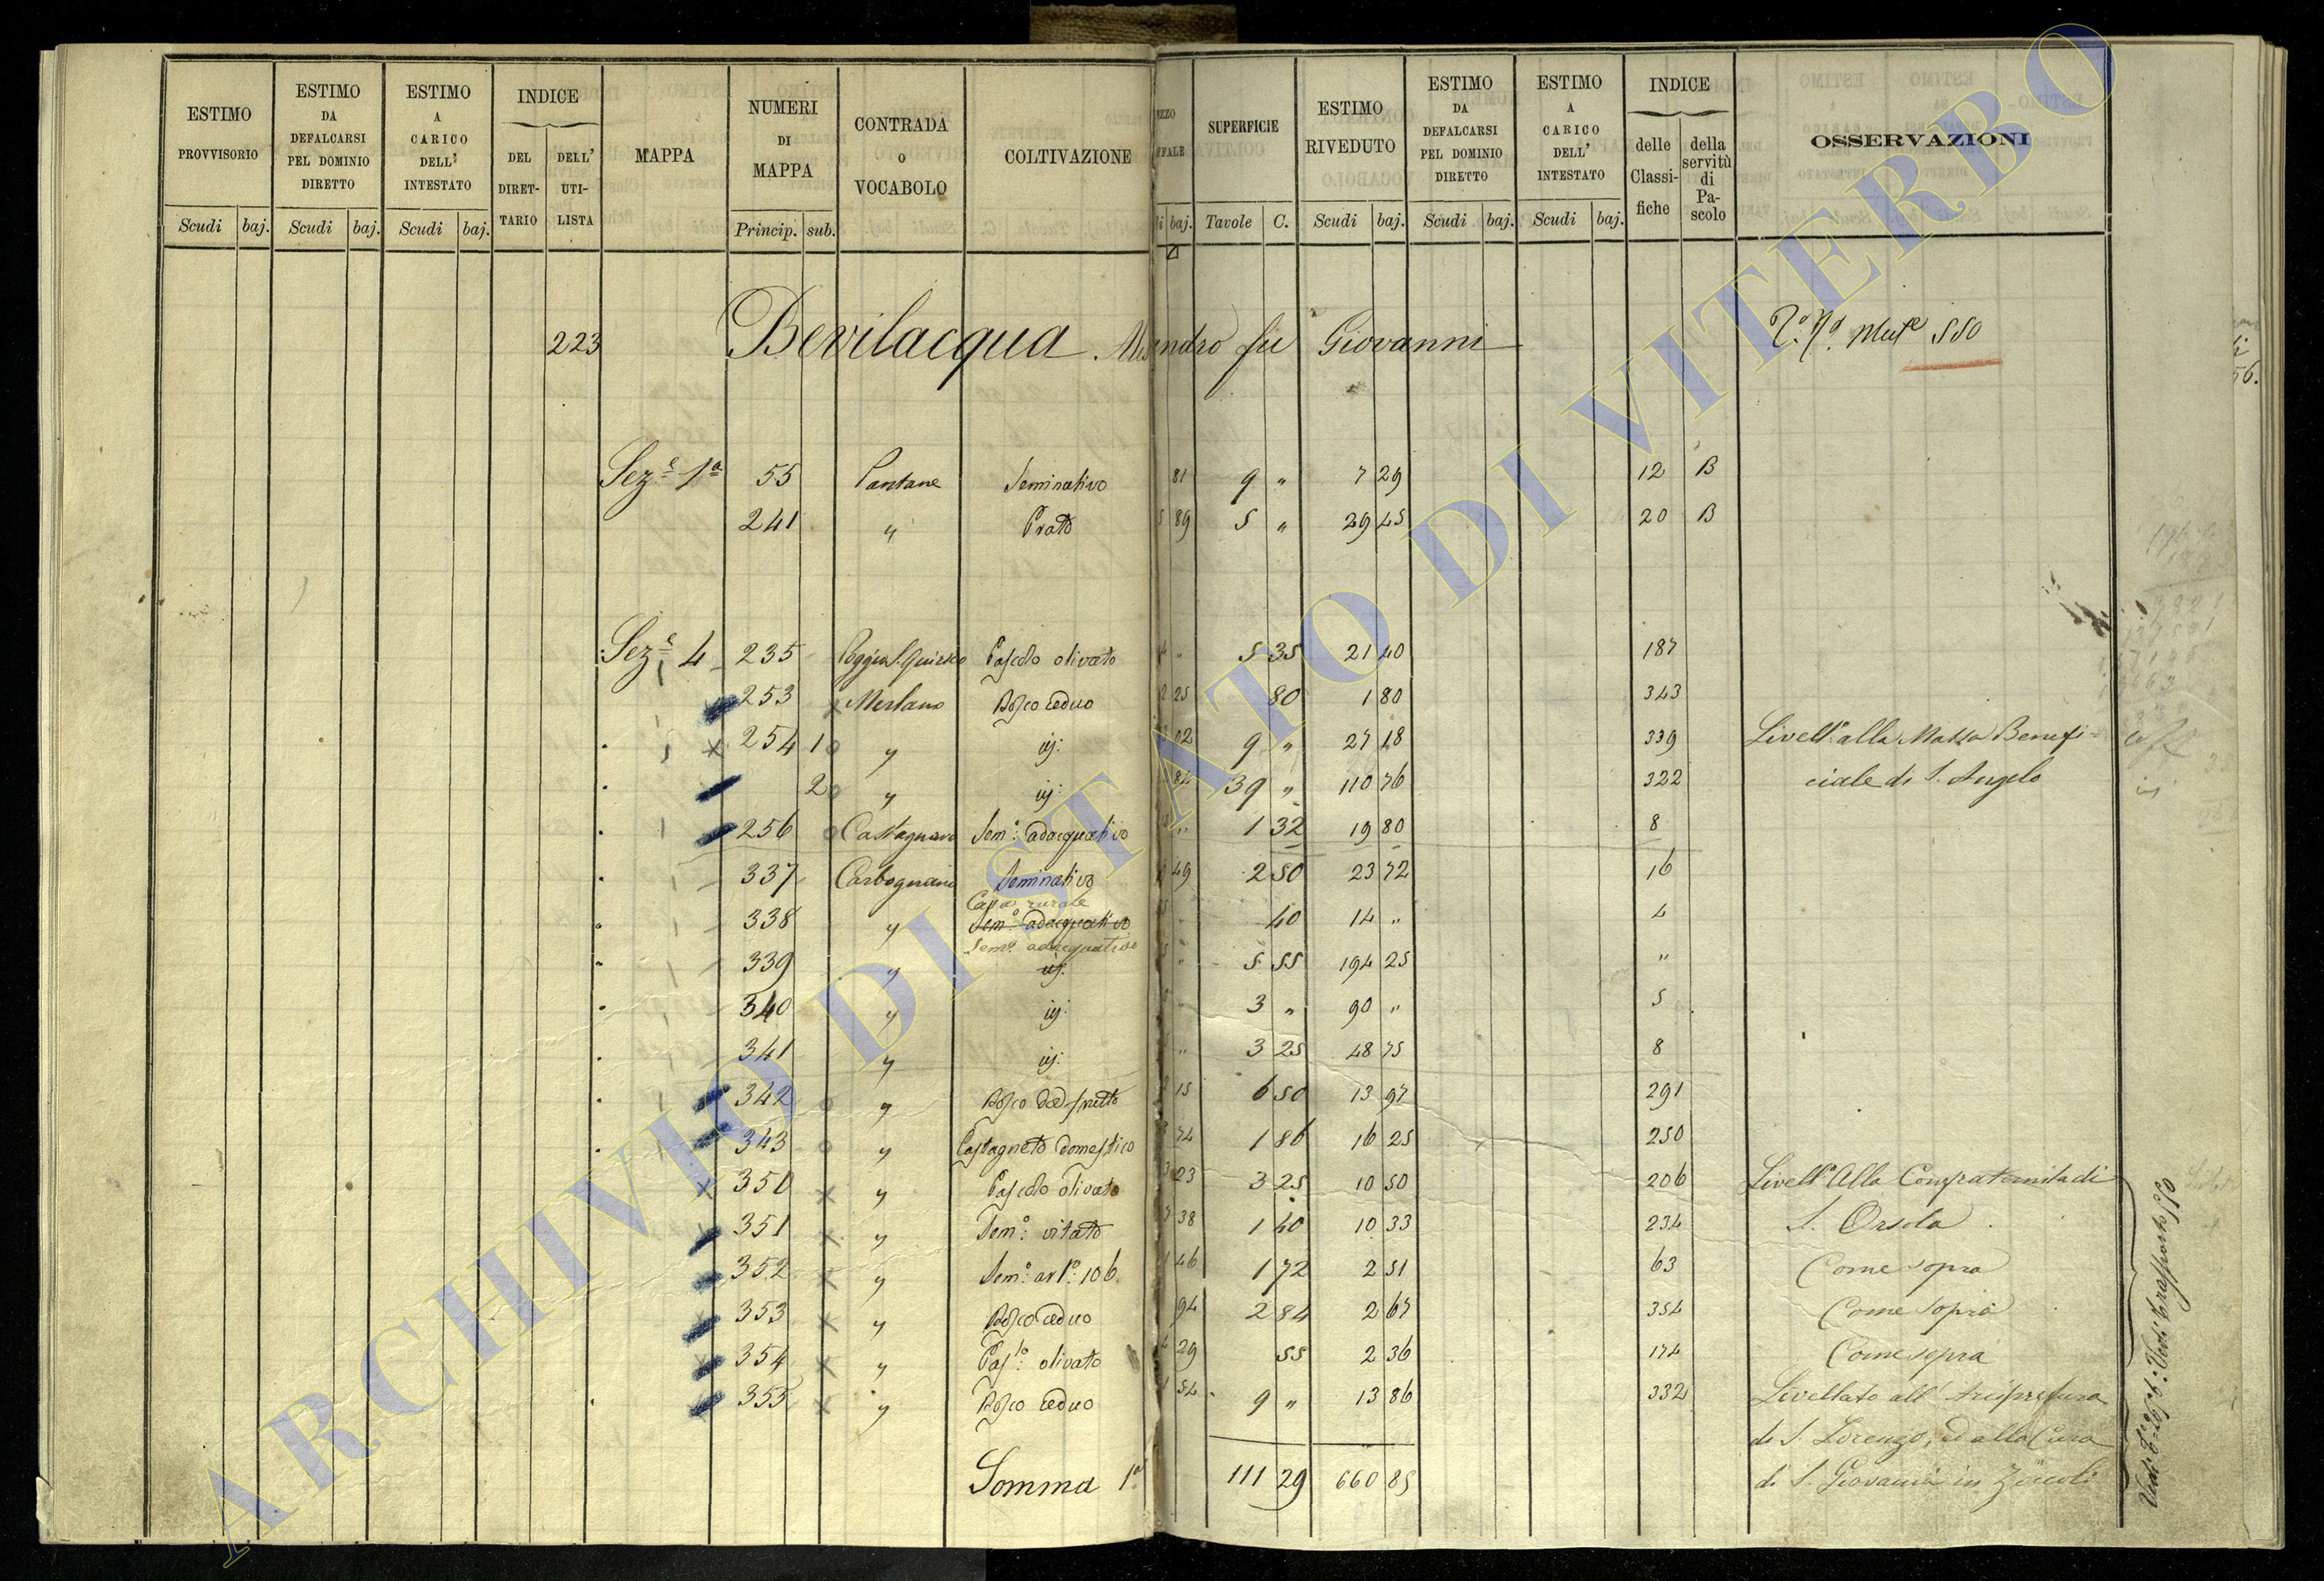 ESTIMO PROVVISORIO Scudi baj.
ESTIMO DA DEFALCARSI PEL DOMINIO DIRETTO Scudi baj.
ESTIMO A CARICO DELL' INTESTATO Scudi baj.
INDICE DEL DIRETTARIO DELL' UTILISTA
MAPPA
NUMERI DI MAPPA Princip. sub.
CONTRADA O VOCABOLO
COLTIVAZIONE
baj.
SUPERFICIE Tavole C.
ESTIMO RIVEDUTO Scudi baj.
ESTIMO DA DEFALCARSI PEL DOMINIO DIRETTO Scudi baj.
ESTIMO A CARICO DELL' INTESTATO Scudi baj.
INDICE delle Classifiche della servitù di Pascolo
OSSERVAZIONI
223 Bevilacqua fu Giovanni 550
Sez.e 1a 55 Pantane Seminativo 81 9 " 7 29 12 B
241 " Prato 5 89 5 " 29 45 20 B
Sez.e 4 235 Poggio S. Quirico Pascolo olivato 4 " 5 35 21 40 187
253 Merlano Bosco ceduo 2 25 80 1 80 343
254 1 " id: 02 9 " 27 18 339 Livell.o alla Massa Benefi=
2 " id: 84 39 " 110 76 322 ciale di S. Angelo
256 Castagnaro Sem.o adacquativo " 1 32 19 80 8
337 Carbognano Seminativo 49 2 50 23 72 16
Casa rurale
338 " Sem.o adacquativo " 40 14 " 4
Sem.o adacquativo
339 " id. " 5 55 194 25 "
340 " id: " 3 " 90 " 5
341 " id: " 3 25 48 75 8
342 " Bosco da frutto 2 15 6 50 13 97 291
343 " Castagneto domestico 74 1 86 16 25 250
350 " Pascolo olivato 3 23 3 25 10 50 206 Livell.o Alla Confraternita di
351 " Sem.o vitato 7 38 1 40 10 33 234 S. Orsola
352 " Sem.o 106 1 46 1 72 2 51 63 Come sopra
353 " Bosco ceduo 94 2 84 2 67 354 Come sopra
354 " Pas.lo olivato 4 29 55 2 36 174 Come sopra
355 " Bosco ceduo 1 54 9 " 13 86 332 Livellato all' Arcipretura
di S. Lorenzo, ed alla Cura
Somma 1a 111 29 660 85 di S. Giovanni in Zoccoli
Vedi Trasporto 550
ARCHIVIO DI STATO DI VITERBO